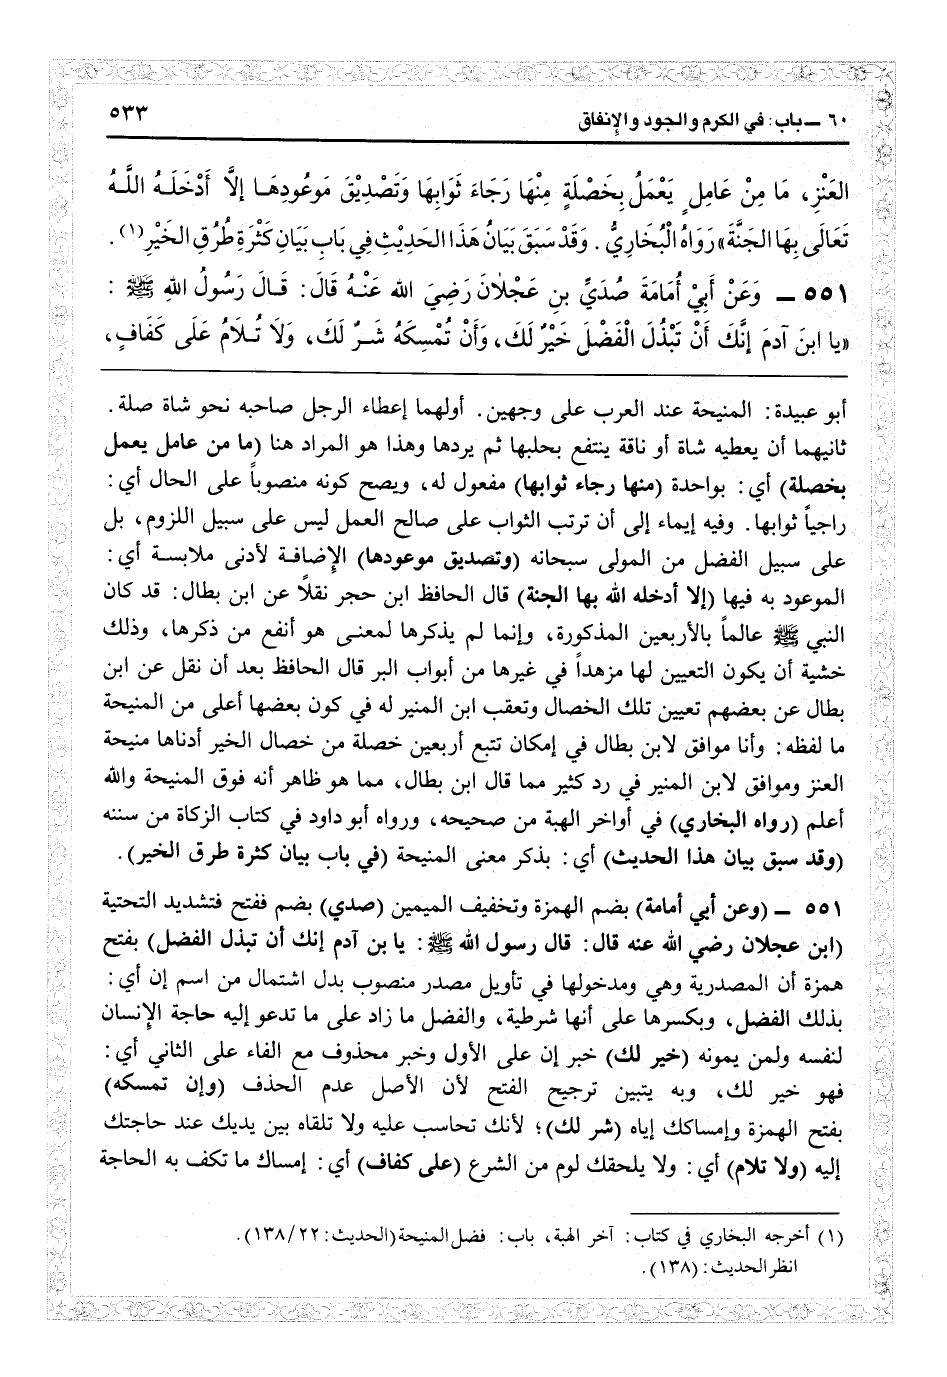 ٦٠ ــ باب: في الكرم والجود والإنفاق
٥٣٣
العَنْزِ، مَا مِنْ عَامِلٍ يَعْمَلُ بِخَصْلَةٍ مِنْهَا رَجَاءَ ثَوَابِهَا وَتَصْدِيْقَ مَوعُودِهَـا إلَّا أَدْخَلَـهُ اللَّـهُ
تَعَالَى بِهَا الجَنَّةَ» رَوَاهُ الْبُخَارِيُّ. وَقَدْ سَبَقَ بَيَانُ هَذَا الحَدِيْثِ فِي بَابِ بَيَانِ كَثْرَةِ طُرُقِ الخَيْرِ(١).
٥٥١ ــ وَعَنْ أَبِيْ أُمَامَةَ صُدَيِّ بنِ عَجْلَانَ رَضِيَ الله عَنْـهُ قَالَ: قَـالَ رَسُولُ اللهِ ﷺ:
«يا ابنَ آدمَ إنَّكَ أَنْ تَبْذُلَ الْفَضْلَ خَيْرٌ لَكَ، وَأَنْ تُمْسِكَهُ شَـرٌ لَكَ، وَلَا تُـلَامُ عَلَى كَفَافٍ،
أبو عبيدة: المنيحة عند العرب على وجهين. أولهما إعطاء الرجل صاحبه نحو شاة صلة.
ثانيهما أن يعطيه شاة أو ناقة ينتفع بحلبها ثم يردها وهذا هو المراد هنا (ما من عامل يعمل
بخصلة) أي: بواحدة (منها رجاء ثوابها) مفعول له، ويصح كونه منصوباً على الحال أي:
راجياً ثوابها. وفيه إيماء إلى أن ترتب الثواب على صالح العمل ليس على سبيل اللزوم، بل
على سبيل الفضل من المولى سبحانه (وتصديق موعودها) الإضافـة لأدنى ملابسـة أي:
الموعود به فيها (إلا أدخله الله بها الجنة) قال الحافظ ابن حجر نقلاً عن ابن بطال: قد كان
النبي ﷺ عالماً بالأربعين المذكورة، وإنما لم يذكرها لمعنـى هو أنفع من ذكرها، وذلك
خشية أن يكون التعيين لها مزهداً في غيرها من أبواب البر قال الحافظ بعد أن نقل عن ابن
بطال عن بعضهم تعيين تلك الخصال وتعقب ابن المنير له في كون بعضها أعلى من المنيحة
ما لفظه: وأنا موافق لابن بطال في إمكان تتبع أربعين خصلة من خصال الخير أدناها منيحة
العنز وموافق لابن المنير في رد كثير مما قال ابن بطال، مما هو ظاهر أنه فوق المنيحة والله
أعلم (رواه البخاري) في أواخر الهبة من صحيحه، ورواه أبو داود في كتاب الزكاة من سننه
(وقد سبق بيان هذا الحديث) أي: بذكر معنى المنيحة (في باب بيان كثرة طرق الخير).
٥٥١ ــ (وعن أبي أمامة) بضم الهمزة وتخفيف الميمين (صدي) بضم ففتح فتشديد التحتية
(ابن عجلان رضي الله عنه قال: قال رسول الله ﷺ: يا بن آدم إنك أن تبذل الفضل) بفتح
همزة أن المصدرية وهي ومدخولها في تأويل مصدر منصوب بدل اشتمال من اسم إن أي:
بذلك الفضل، وبكسرها على أنها شرطية، والفضل ما زاد على ما تدعو إليه حاجة الإنسان
لنفسه ولمن يمونه (خير لك) خبر إن على الأول وخبر محذوف مع الفاء على الثاني أي:
فهو خير لك، وبه يتبين ترجيح الفتح لأن الأصل عدم الحذف (وإن تمسكه)
بفتح الهمزة وإمساكك إياه (شر لك)؛ لأنك تحاسب عليه ولا تلقاه بين يديك عند حاجتك
إليه (ولا تلام) أي: ولا يلحقك لوم من الشرع (على كفاف) أي: إمساك ما تكف به الحاجة
(١) أخرجه البخاري في كتاب: آخر الهبة، باب: فضل المنيحة (الحديث: ١٣٨/٢٢).
انظر الحديث: (١٣٨).